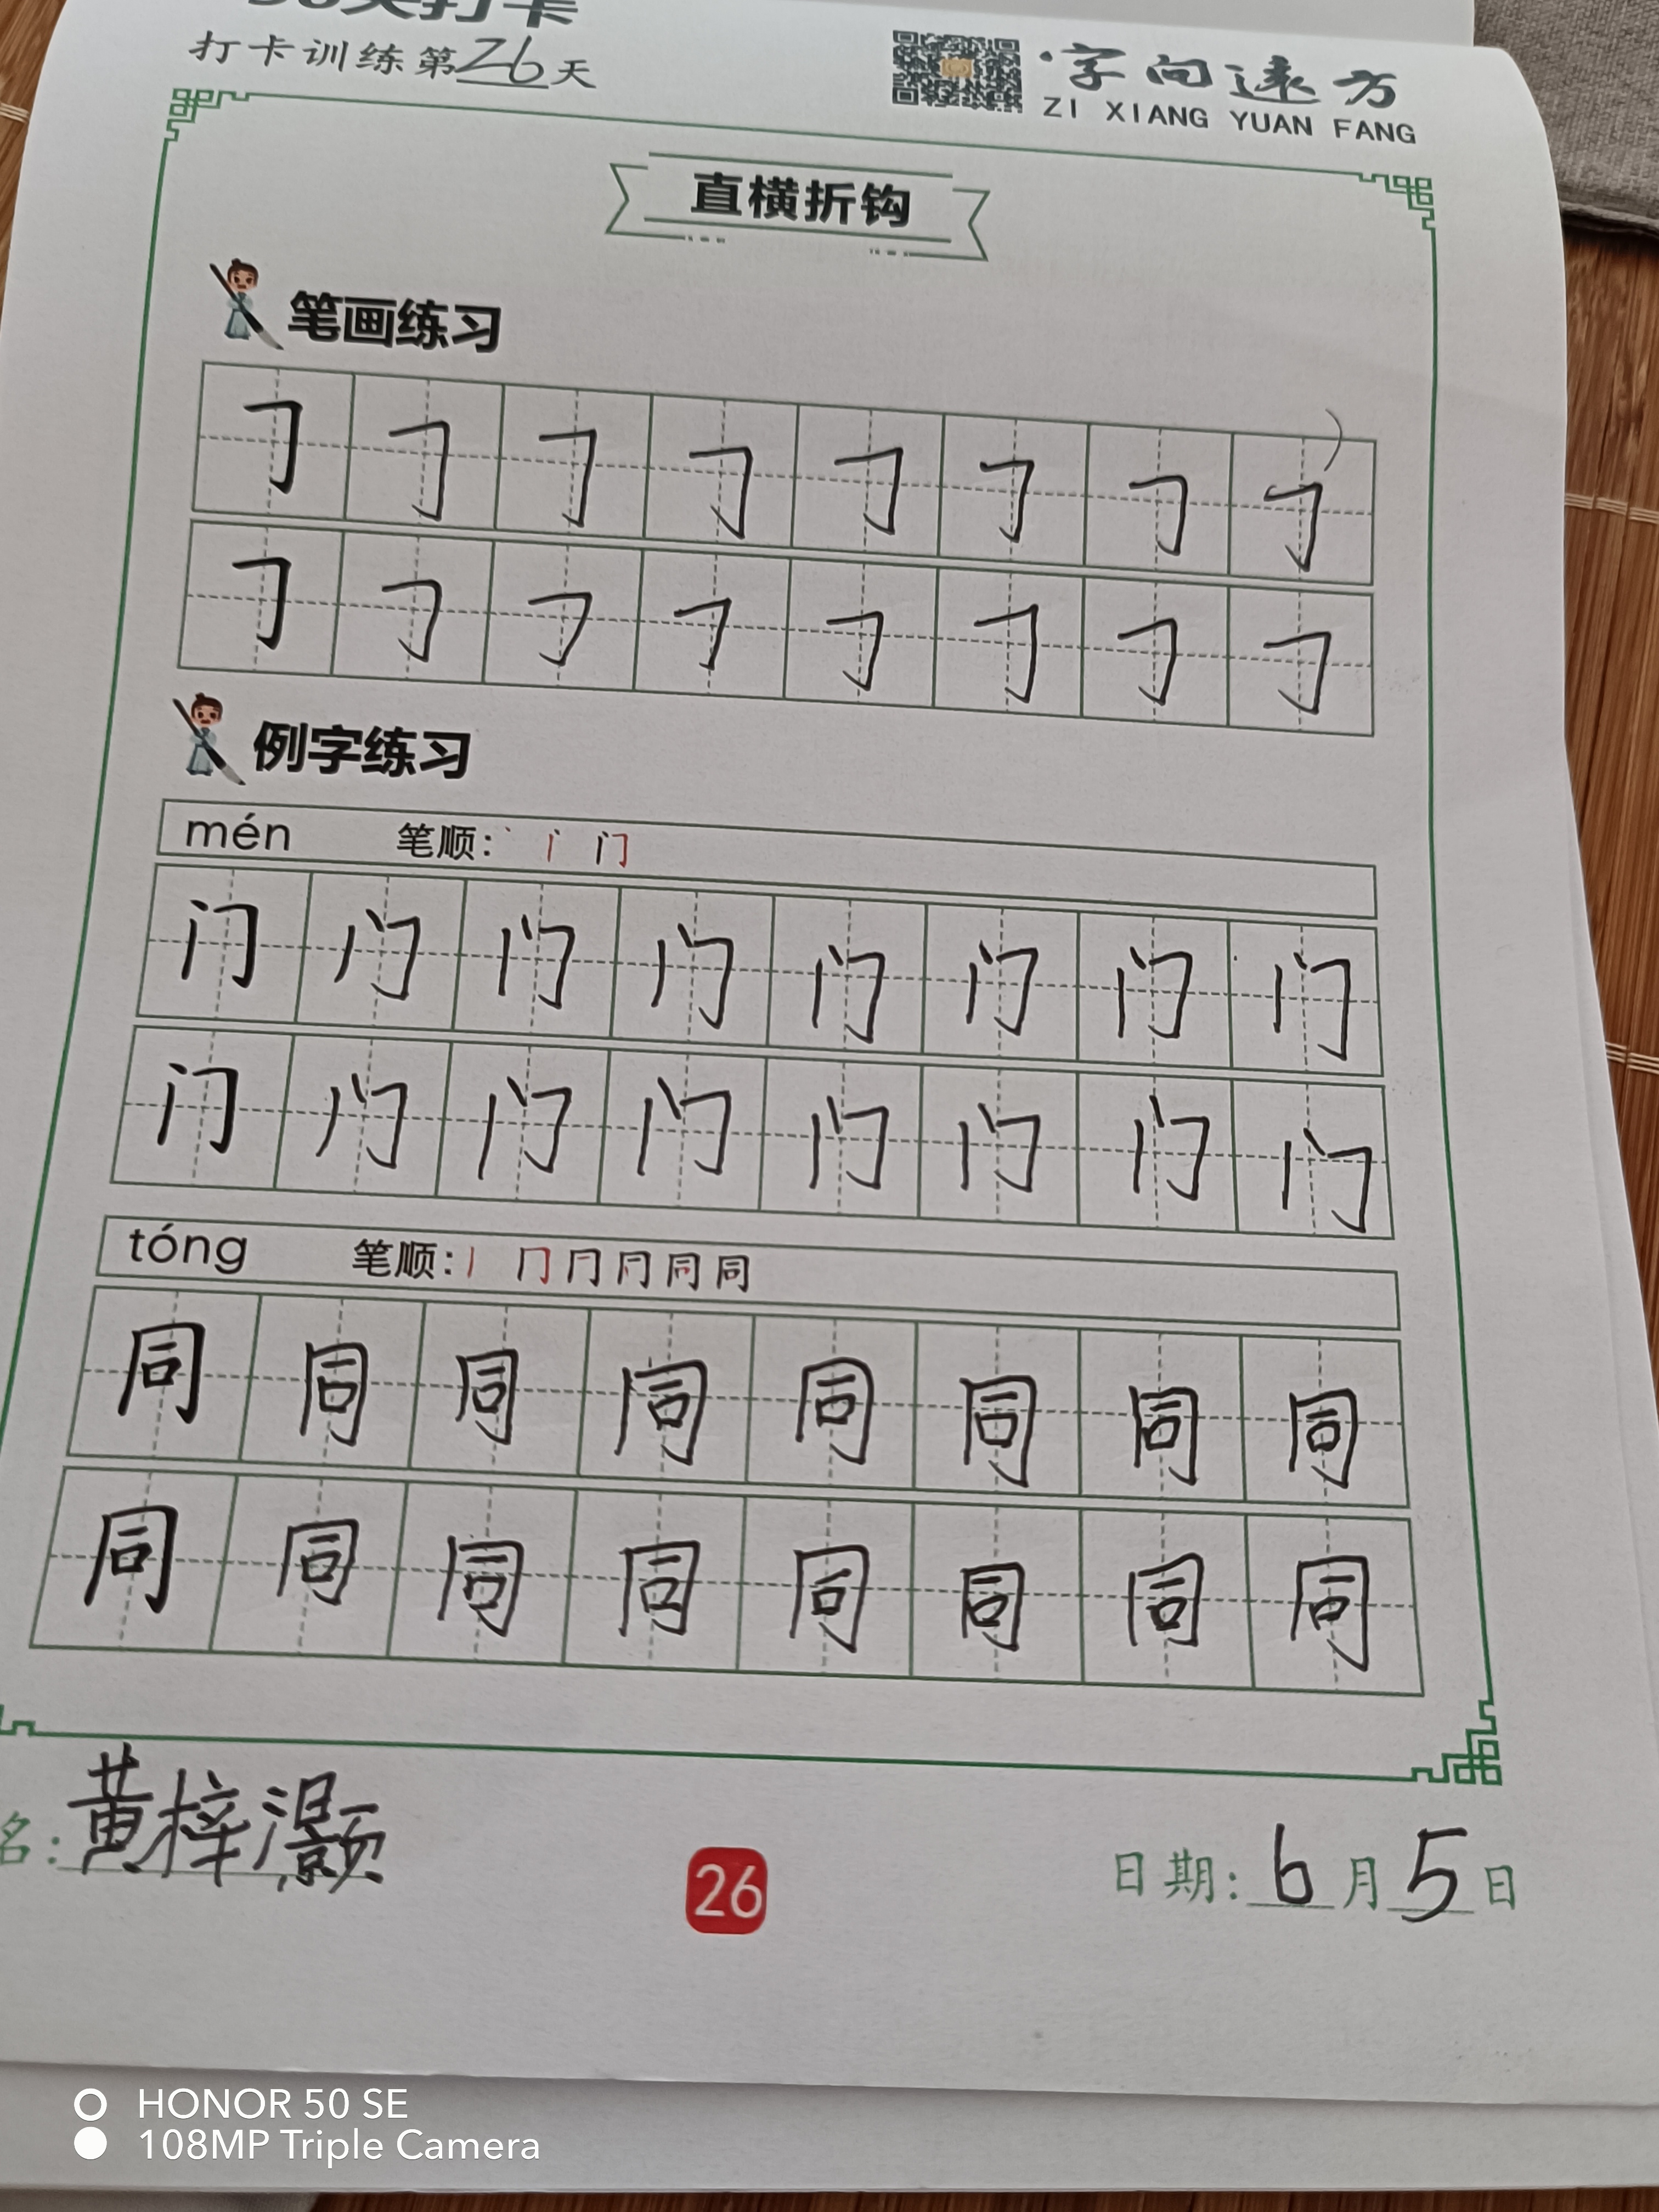 打卡训练第26天
字向远方
ZI XIANG YUAN FANG
直横折钩
笔画练习
𠃌 𠃌 𠃌 𠃌 𠃌 𠃌 𠃌 𠃌
𠃌 𠃌 𠃌 𠃌 𠃌 𠃌 𠃌 𠃌
例字练习
mén 笔顺: 丶 门
门 门 门 门 门 门 门 门
门 门 门 门 门 门 门 门
tóng 笔顺: 丨 冂 同 同
同 同 同 同 同 同 同 同
同 同 同 同 同 同 同 同
名: 黄梓灏
26
日期: 6月5日
HONOR 50 SE
108MP Triple Camera